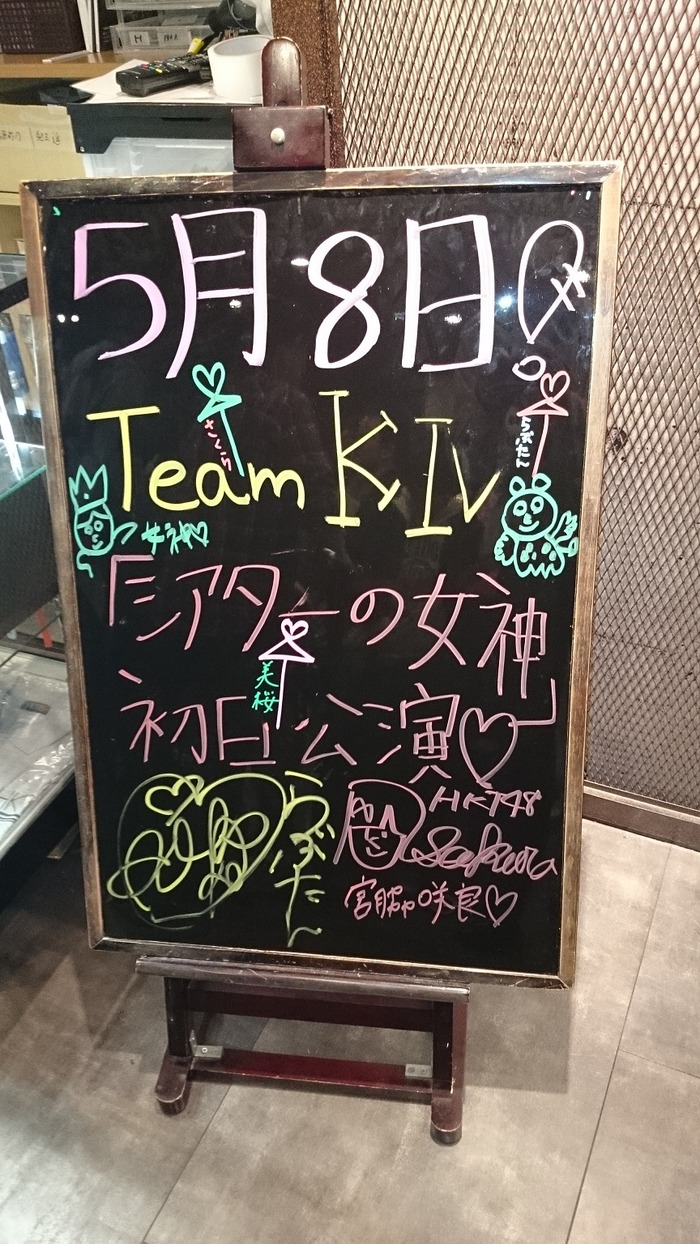 5月8日
さくら
らぶたん
Team KIV
女神♡
「シアターの女神」
美桜
初日公演♡
らぶたん
HKT48
Sakura
宮脇咲良♡